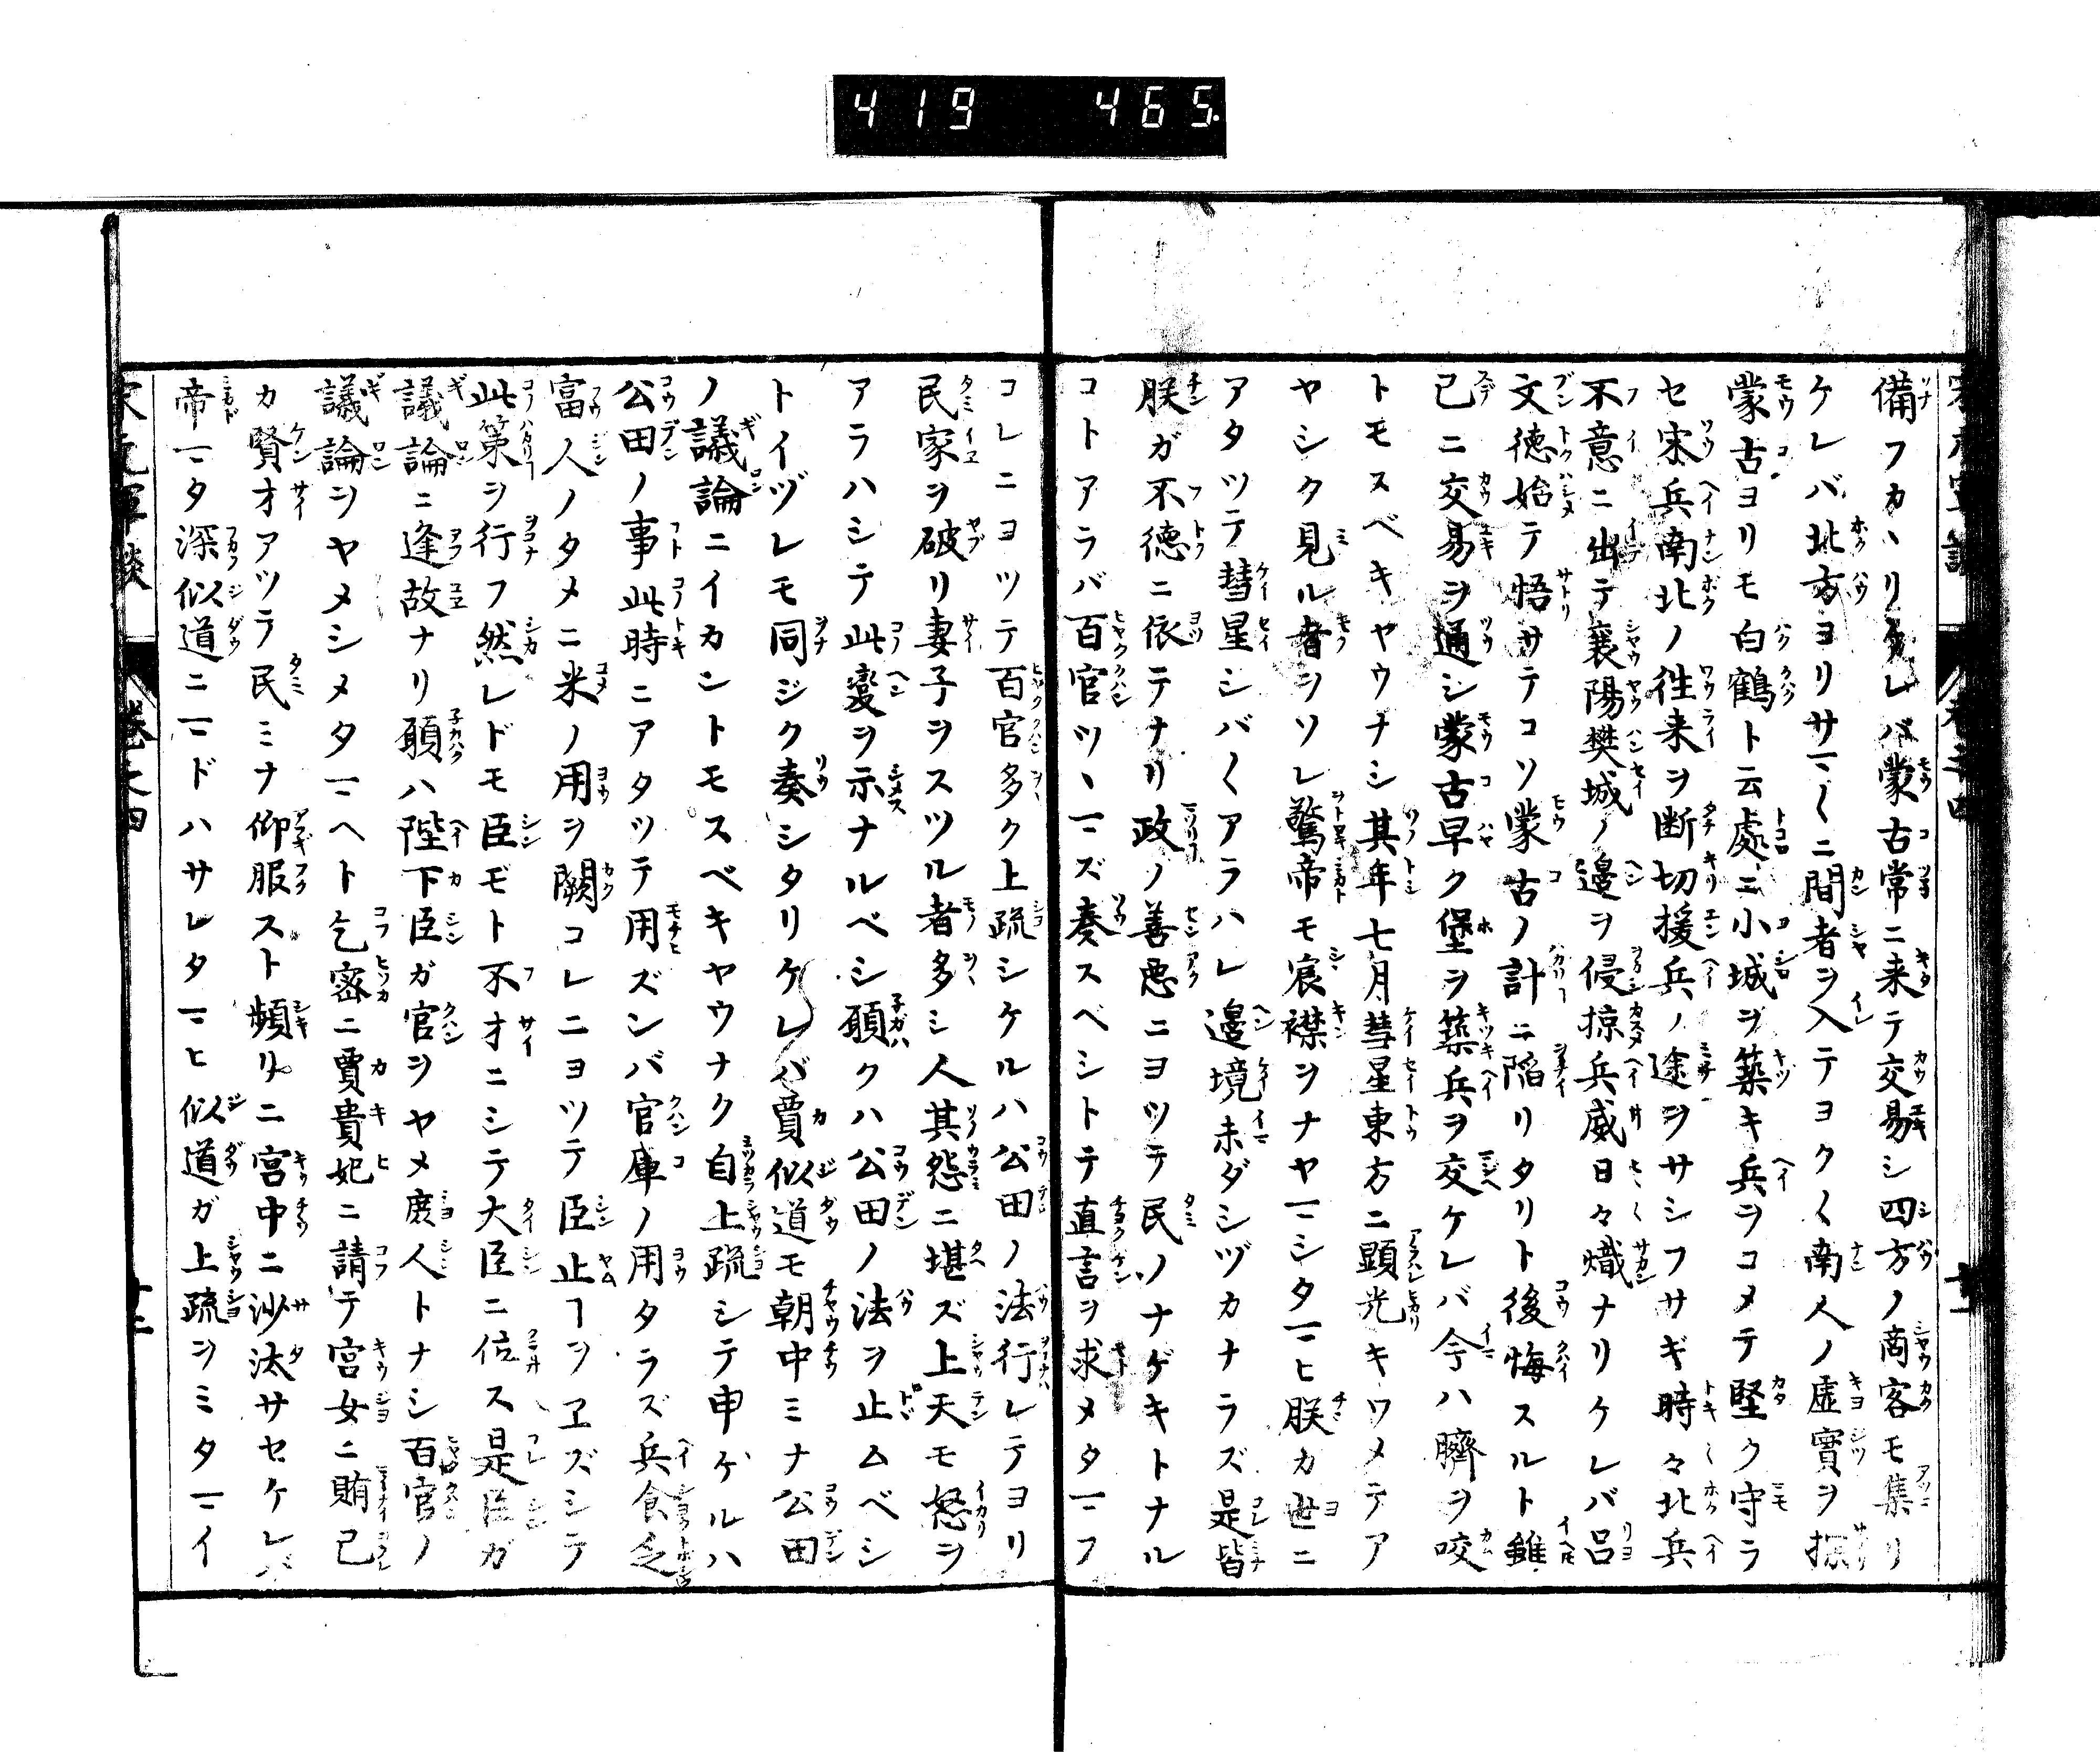 419 465.
備フカヽリケレバ蒙古常ニ来テ交易シ四方ノ商客モ集リ
ケレバ北方ヨリサマ〱ニ間者ヲ入テヨク〱南人ノ虚實ヲ探
蒙古ヨリモ白鶴ト云處ニ小城ヲ築キ兵ヲコメテ堅ク守ラ
セ宋兵南北ノ徃来ヲ断切援兵ノ途ヲサシフサギ時々北兵
不意ニ出テ襄陽樊城ノ邉ヲ侵掠兵威日々熾ナリケレバ呂
文徳始テ悟サテコソ蒙古ノ計ニ陥リタリト後悔スルト雖
已ニ交易ヲ通シ蒙古早ク堡ヲ築兵ヲ交ケレバ今ハ臍ヲ咬
トモスベキヤウナシ其年七月彗星東方ニ顕光キワメテア
ヤシク見ル者ヲソレ驚帝モ宸襟ヲナヤマシタマヒ朕カ世ニ
アタツテ彗星シバ〱アラハレ邉境未ダシヅカナラズ是皆
朕ガ不徳ニ依テナリ政ノ善悪ニヨツテ民ノナゲキトナル
コトアラバ百官ツヽマズ奏スベシトテ直言ヲ求メタマフ
コレニヨツテ百官多ク上疏シケルハ公田ノ法行レテヨリ
民家ヲ破リ妻子ヲスツル者多シ人其怨ニ堪ズ上天モ怒ヲ
アラハシテ此変ヲ示ナルベシ願クハ公田ノ法ヲ止ムベシ
トイヅレモ同ジク奏シタリケレバ賈似道モ朝中ミナ公田
ノ議論ニイカントモスベキヤウナク自上疏シテ申ゲルハ
公田ノ事此時ニアタツテ用ズンバ官庫ノ用タラズ兵食乏
富人ノタメニ米ノ用ヲ闕コレニヨツテ臣止ヿヲヱズシテ
此策ヲ行フ然レドモ臣モト不才ニシテ大臣ニ位ス是臣ガ
議論ニ逢故ナリ願ハ陛下臣ガ官ヲヤメ庻人トナシ百官ノ
議論ヲヤメシメタマヘト乞密ニ賈貴妃ニ請テ宮女ニ賄己
カ賢才アツラ民ミナ仰服スト頻リニ宮中ニ沙汰サセケレバ
帝マタ深似道ニマドハサレタマヒ似道ガ上疏ヲミタマイ
宋元軍談 巻之四 十二